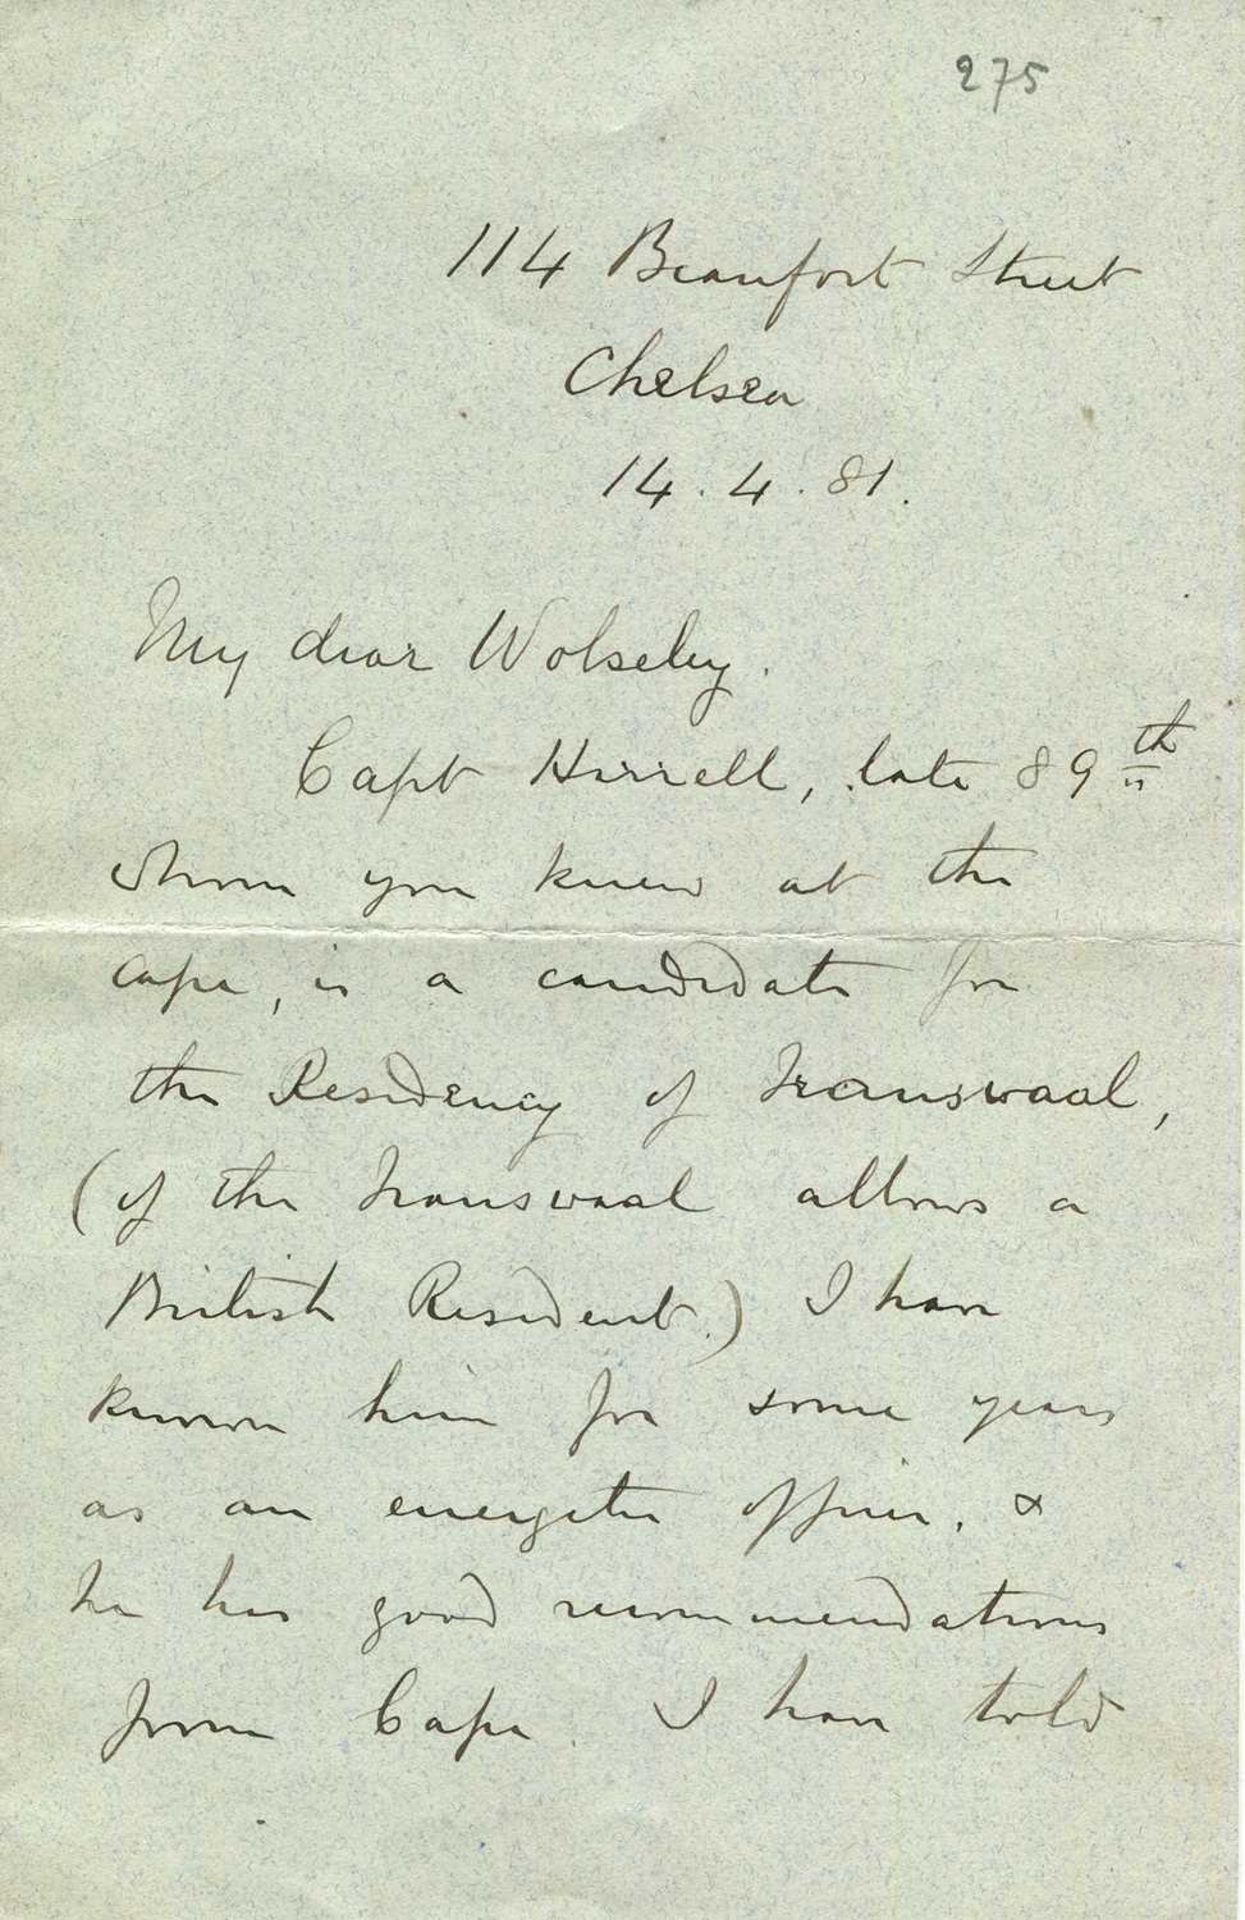 275
114 Beaufort Street
Chelsea
14.4.81.
My dear Wolseley.
Capt Hirrell, late 89th
whom you knew at the
Cape, is a candidate for
the Residency of Transvaal,
(if the Transvaal allows a
British Resident.) I have
known him for some years
as an energetic officer, &
he has good recommendations
from Cape. I have told